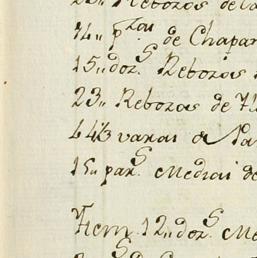 Rebozos de
74,, p.zas de Chapar
15,, doz.s Rebozos
23,, Rebozos de
443 varas de
15,, par.s Medias de
Ytem. 12,, doz.s Me